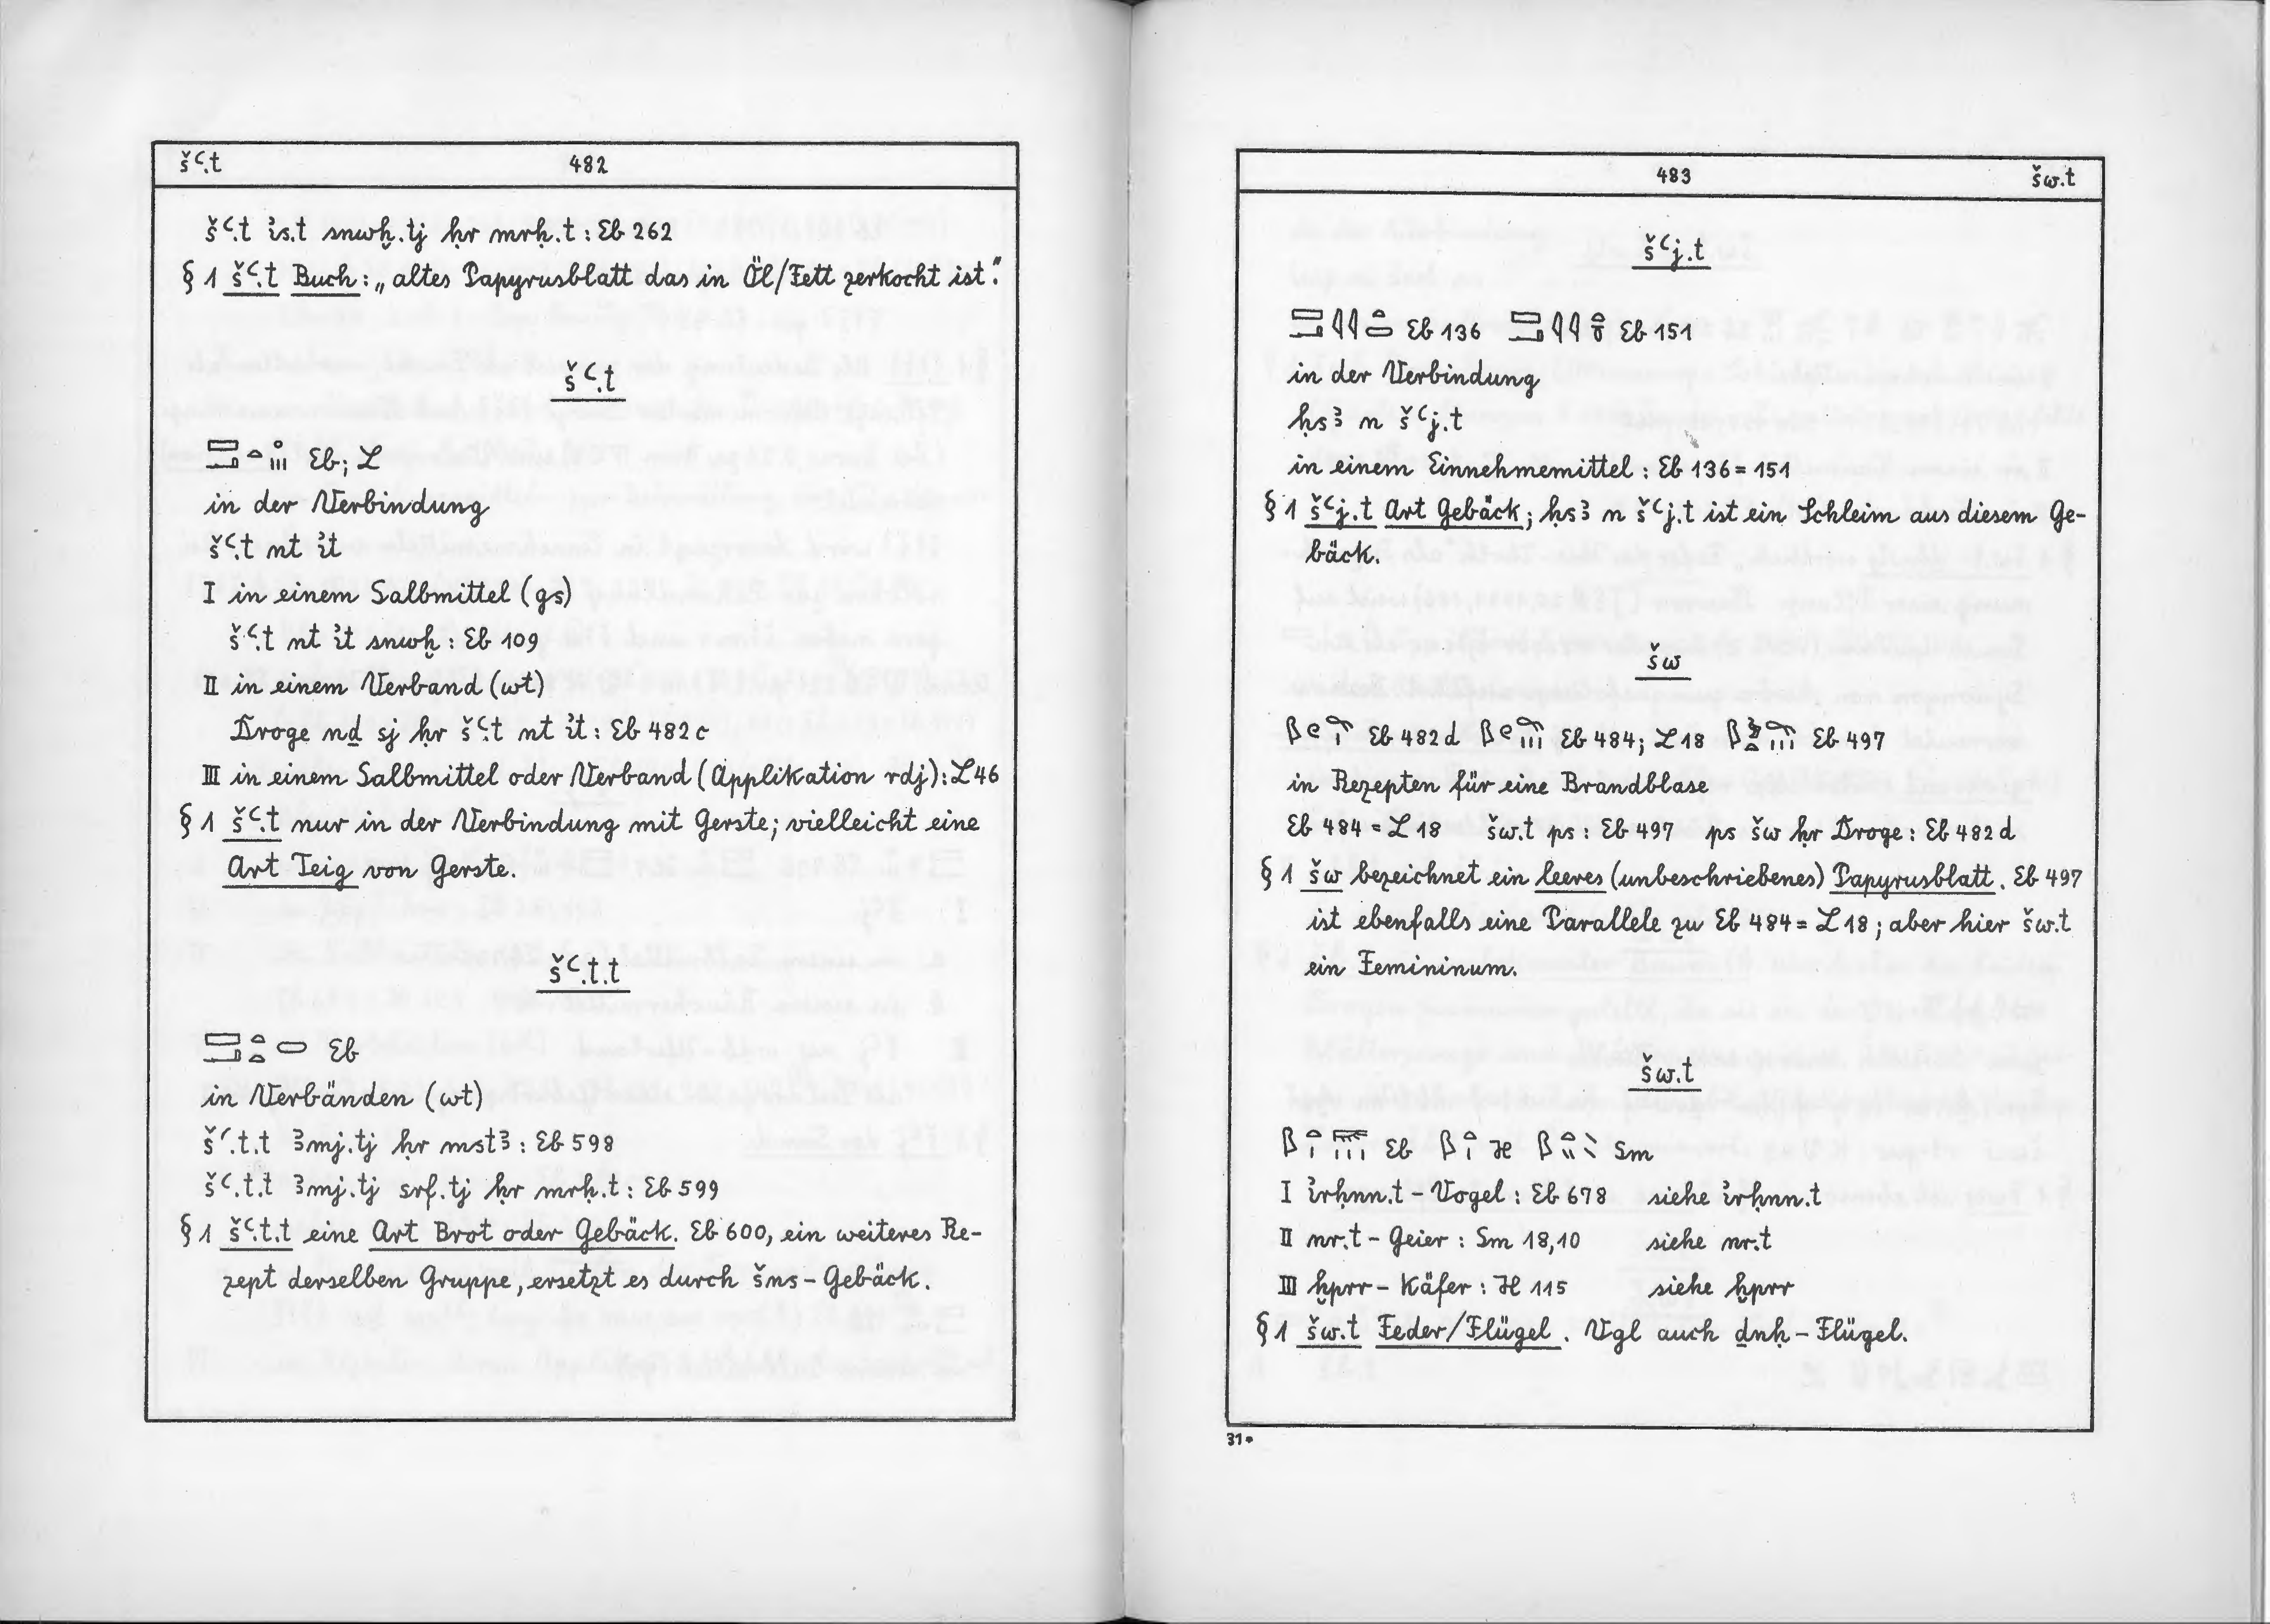 šꜥ.t 482
šꜥ.t ı͗s.t snwḫ.tj ḥr mrḥ.t : Eb 262
§ 1 šꜥ.t Buch : „altes Papyrusblatt das in Öl/Fett zerkocht ist".
šꜥ.t
𓈙𓂝𓏏𓈒𓏥 Eb; L
in der Verbindung
šꜥ.t nt ı͗t
I in einem Salbmittel (gs)
šꜥ.t nt ı͗t snwḫ : Eb 109
II in einem Verband (wt)
Droge nḏ sj ḥr šꜥ.t nt ı͗t : Eb 482 c
III in einem Salbmittel oder Verband (Applikation rdj) : L 46
§ 1 šꜥ.t nur in der Verbindung mit Gerste; vielleicht eine
Art Teig von Gerste.
šꜥ.t.t
𓈙𓂝𓏏𓏏 Eb
in Verbänden (wt)
šꜥ.t.t ꜣmj.tj ḥr mstꜣ : Eb 598
šꜥ.t.t ꜣmj.tj srf.tj ḥr mrḥ.t : Eb 599
§ 1 šꜥ.t.t eine Art Brot oder Gebäck. Eb 600, ein weiteres Re-
zept derselben Gruppe, ersetzt es durch šns-Gebäck.
483 šw.t
šꜥj.t
𓈙𓂝𓇋𓇋𓏏 Eb 136 𓈙𓂝𓇋𓇋𓏏 Eb 151
in der Verbindung
ḥsꜣ n šꜥj.t
in einem Einnehmemittel : Eb 136 = 151
§ 1 šꜥj.t Art Gebäck; ḥsꜣ n šꜥj.t ist ein Schleim aus diesem Ge-
bäck.
šw
𓆄𓏲 Eb 482 d 𓆄𓏲𓏥 Eb 484; L 18 𓆄𓏥 Eb 497
in Rezepten für eine Brandblase
Eb 484 = L 18 šw.t ps : Eb 497 ps šw ḥr Droge : Eb 482 d
§ 1 šw bezeichnet ein leeres (unbeschriebenes) Papyrusblatt. Eb 497
ist ebenfalls eine Parallele zu Eb 484 = L 18; aber hier šw.t
ein Femininum.
šw.t
𓆄𓏏𓏤𓏥 Eb 𓆄𓏏𓏤 H 𓆄𓏏𓏭 Sm
I ı͗rḥnn.t - Vogel : Eb 678 siehe ı͗rḥnn.t
II nr.t - Geier : Sm 18,10 siehe nr.t
III ḫprr - Käfer : H 115 siehe ḫprr
§ 1 šw.t Feder/Flügel. Vgl auch ḏnḥ - Flügel.
31*